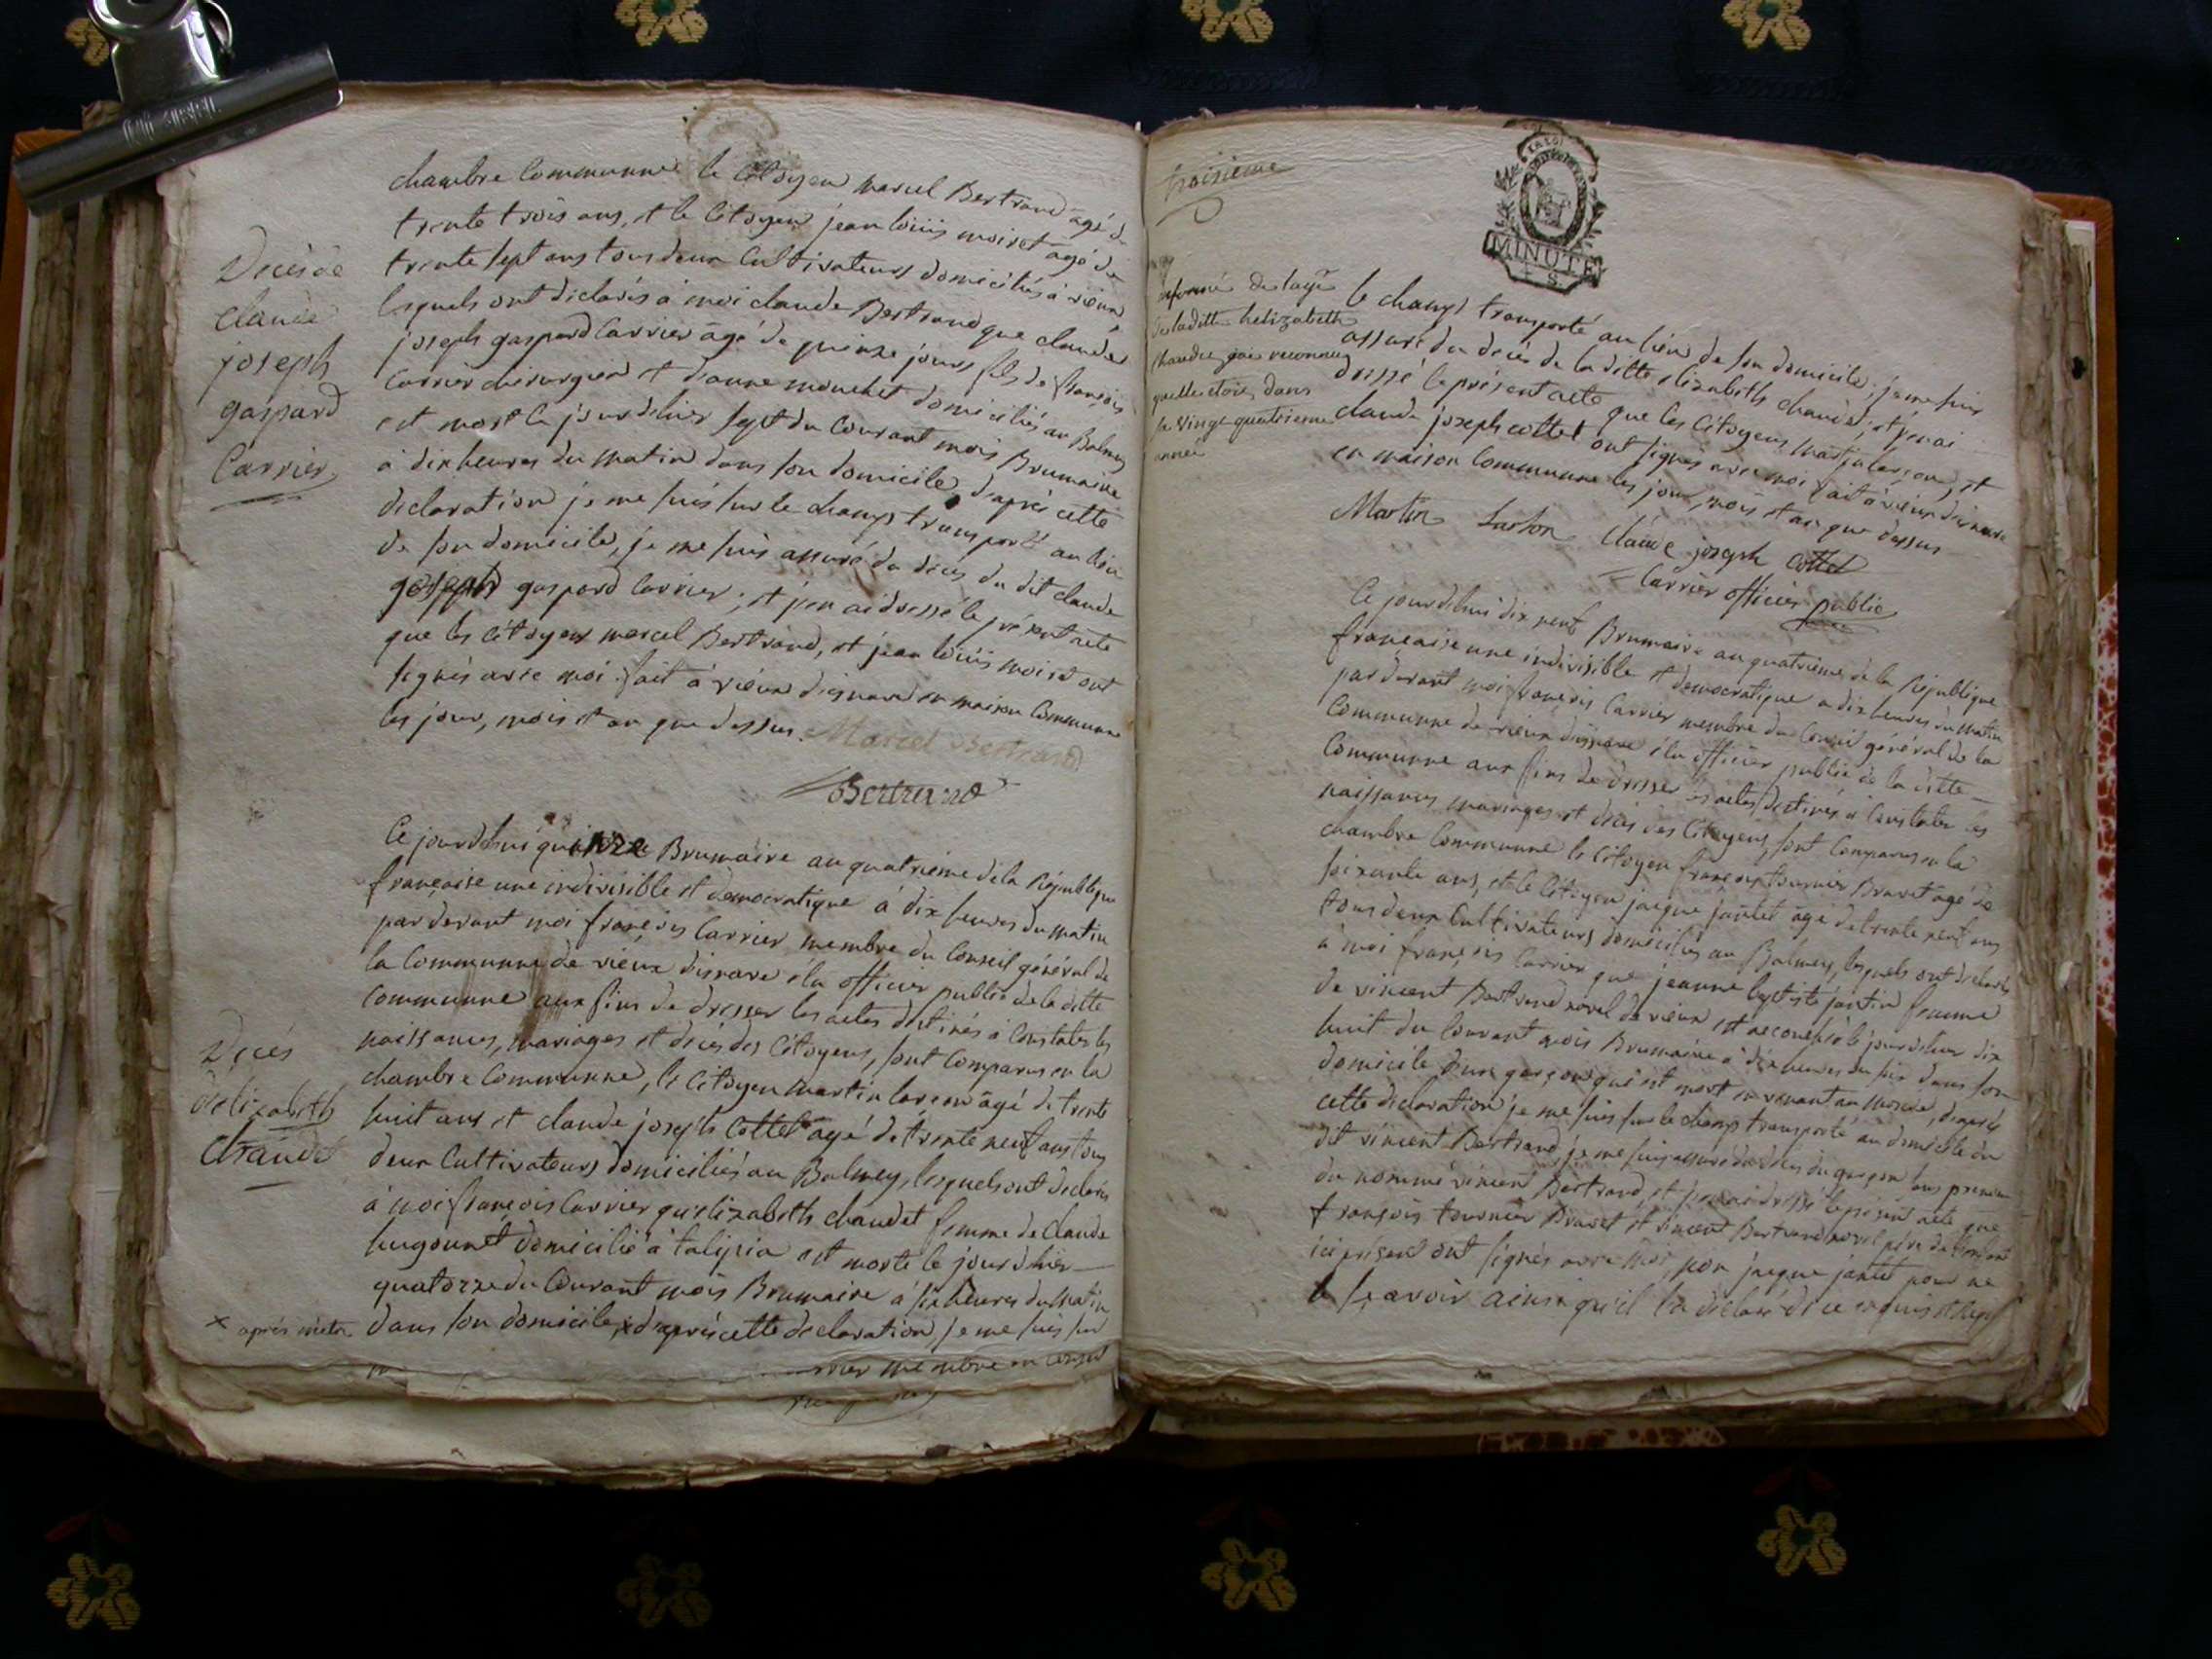 chambre Communne le Citoyen marcel Bertrand agé de
trente trois ans, et le Citoyen jean louis moiret agé de
trente sept ans tous deux Cultivateurs domiciliés à vieux
lesquels ont déclarés à moi claude Bertrand que claude
joseph gaspard Carrier âgé de quinze jours fils de françois
Carrier chirurgien et d'anne mouchet domiciliés au Balmey
est mort le jour d'hier sept du Courant mois Brumaire
à dix heures du matin dans son domicile d'après cette
declaration je me suis sur le champs transporté au lieu
de son domicile, je me suis assuré du décès du dit claude
joseph gaspard Carrier; et j'en ai dressé le présent acte
que les Citoyens marcel Bertrand, et jean louis moiret ont
signés avec moi. fait à vieux d'isenave en maison Communne
les jour, mois et an que dessus. Marcel Bertrand
Bertrand
Décès de
claude
joseph
gaspard
Carrier
Ce jourd'hui quinze Brumaire an quatrième de la République
française une indivisible et démocratique à dix heures du matin
par devant moi françois Carrier membre du Conseil général de
la Communne de vieux disenave élu officier public de la ditte
Communne aux fins de dresser les actes destinés à Constater les
naissances, mariages et décès des Citoyens, sont Comparus en la
chambre Communne, le Citoyen martin larson âgé de trente
huit ans et claude joseph Cottet agé de trente neuf ans tous
deux Cultivateurs domiciliés au Balmey, lesquels ont declarés
à moi françois Carrier qu'elizabeth chaudet femme de Claude
hugonnet domicilié à talipia est morte le jour d'hier
quatorze du Courant mois Brumaire à six heures du matin
dans son domicile, x d'après cette declaration, je me suis sur
Décès
d'elizabeth
Chaudet
x après m'etre
rier membre du conseil
troisieme
MINUTE
S
informé de l'age
de laditte helizabeth
chaudet, j'ai reconnu
qu'elle etoit dans
sa vingt quatrieme
année
le champs transporté au lieu de son domicile; je me suis
assuré du décès de la ditte elizabeth chaudet; et j'en ai
dressé le présent acte que les Citoyens martin larson, et
claude joseph cottet ont signés avec moi fait à vieux disenave
en maison Communne les jour, mois et an que dessus
Martin Larson Claude joseph Cottet
Carrier officier public
Ce jourd'hui dix neuf Brumaire an quatrième de la République
française une indivisible et démocratique a dix heures du matin
par devant moi françois Carrier membre du Conseil général de la
Communne de vieux disenave élu officier public de la ditte
Communne aux fins de dresser les actes destinés à Constater les
naissances mariages et décès des Citoyens, sont Comparus en la
chambre Communne le Citoyen françois tournier Bravet agé de
soixante ans, et le Citoyen jacque jantet âgé de trente neuf ans
tous deux Cultivateurs domiciliés au Balmey, lesquels ont declarés
à moi françois Carrier que jeanne baptiste jantin femme
de vincent Bertrand novel de vieux est accouchée le jour d'hier dix
huit du Courant mois Brumaire à dix heures du soir dans son
domicile d'un garçon qui est mort en venant au monde, d'après
cette declaration je me suis sur le champs transporté au domicile du
dit vincent Bertrand, je me suis assuré du décès du garçon sans prenom
du nommé vincent Bertrand, et j'en ai dressé le présent acte que
françois tournier Bravet et vincent Bertrand novel père de l'enfant
ici présent ont signés avec moi, non jacque jantet pour ne
le sçavoir ainsi qu'il l'a déclaré de ce requis